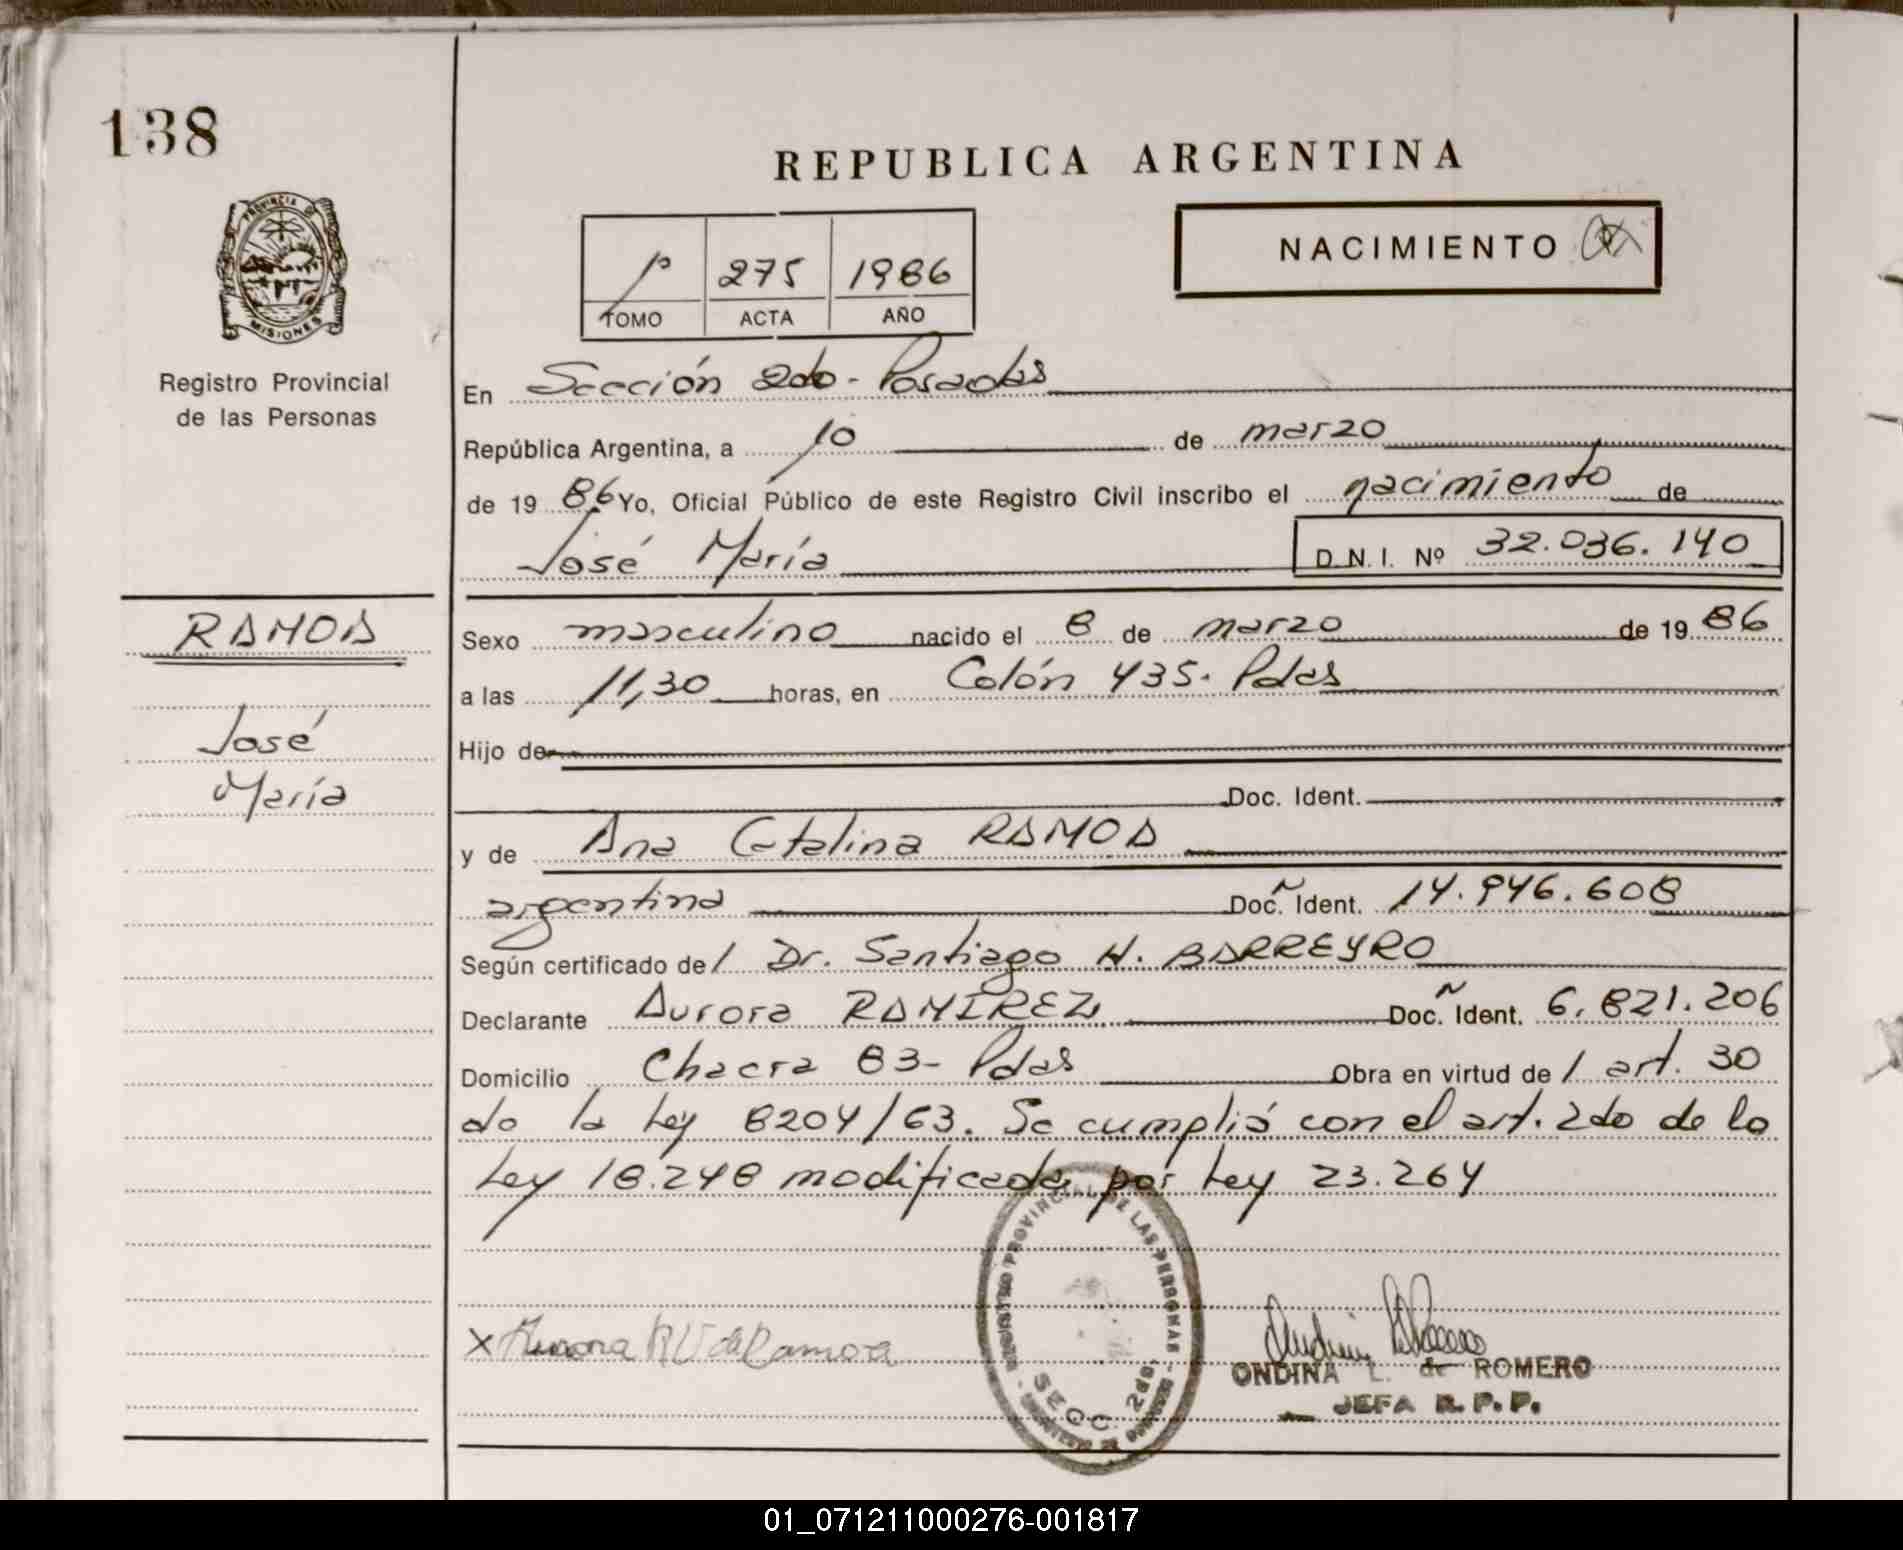 138
REPUBLICA ARGENTINA
PROVINCIA DE
MISIONES
Registro Provincial
de las Personas
275 1986
TOMO ACTA AÑO
NACIMIENTO
En Sección 2da - Posadas
República Argentina, a 10 de marzo
de 19 86 Yo, Oficial Público de este Registro Civil inscribo el nacimiento de
José María D.N.I. Nº 32.036.140
RAMOA
José
María
Sexo masculino nacido el 8 de marzo de 19 86
a las 11,30 horas, en Colón 435. Pdas
Hijo de
Doc. Ident.
y de Ana Catalina RAMOA
argentina Doc. Ident. 14.946.608
Según certificado del Dr. Santiago H. BARREYRO
Declarante Aurora RAMIREZ Doc. Ident. 6.821.206
Domicilio Chacra 83- Pdas Obra en virtud del art. 30
de la Ley 8204/63. Se cumplió con el art. 2do de la
Ley 18.248 modificada por Ley 23.264
REGISTRO PROVINCIAL DE LAS PERSONAS
SECC. 2da.
X Aurora R V de Ramoa
ONDINA L. de ROMERO
JEFA R.P.P.
01_071211000276-001817